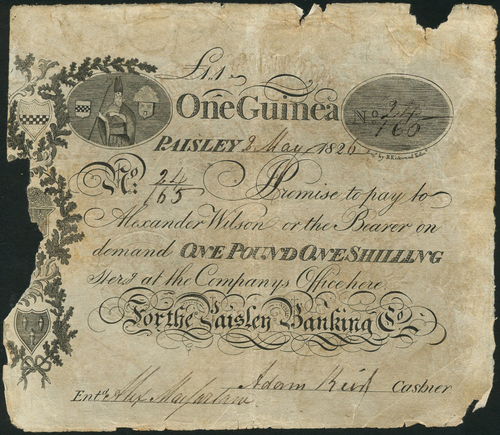 £1.1
One Guinea
No. 24/165
PAISLEY 2 May 1826
No. 24/165 Promise to pay to
Alexander Wilson or the Bearer on
demand ONE POUND ONE SHILLING
Sterg at the Companys Office here
For the Paisley Banking Co.
Adam Keir Cashier
Entd. Alex